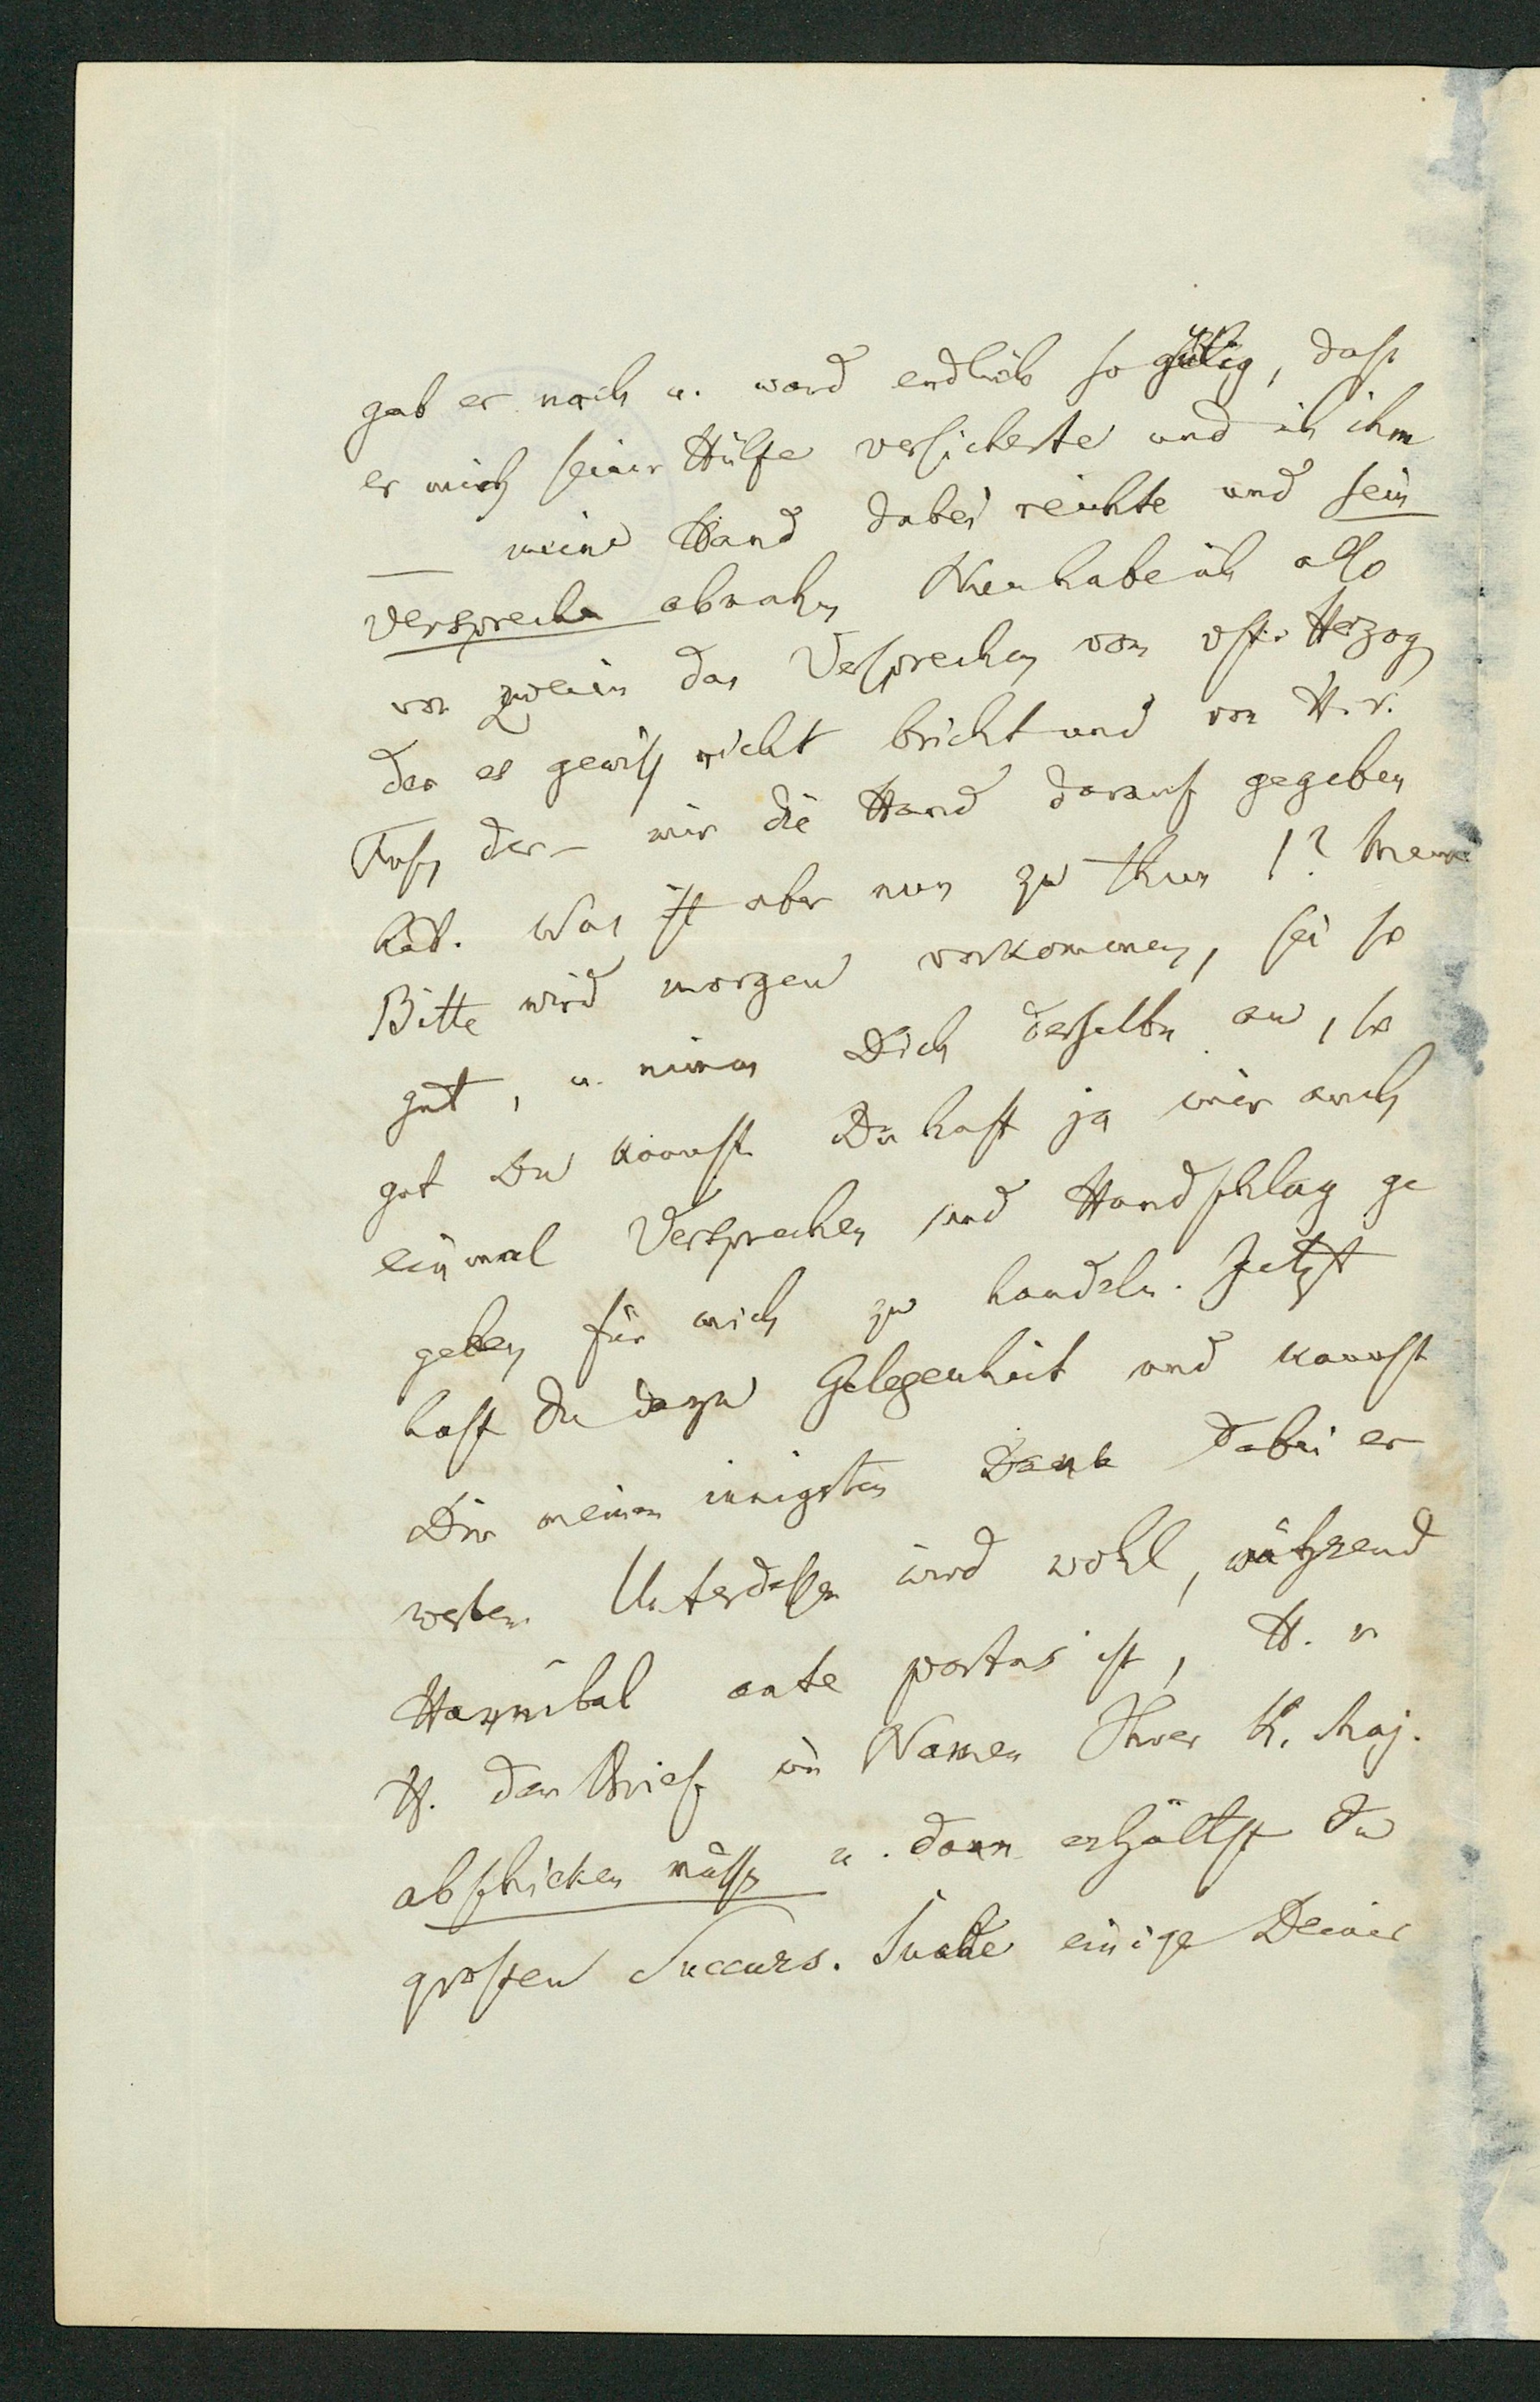 gab er nach u. ward endlich so gütig, daß
er mich seiner Hülfe versicherte und ich ihm
— meine Hand dabei reichte und sein
Versprechen abnahm Nun habe ich also
von zweien das Versprechen vom Herzog
der es gewiß nicht bricht und von H. v.
der – mir die Hand darauf gegeben
hat. Was ist aber nun zu thun !? Meine
Bitte wird morgen vorkommen, sei so
gut, u. nimm Dich derselben an, so
gut Du kannst. Du hast ja mir auch
einmal Versprechen und Handschlag ge
geben für mich zu handeln. Jetzt
hast Du dazu Gelegenheit und kannst
Dir meinen innigsten Dank dabei er
werben. Unterdessen wird wohl, während
Hannibal ante portas ist, H. v
H. den Brief im Namen Ihrer K. Maj.
abschicken müssen u. dann erhältst Du
großen Succurs. Suche einige Deiner